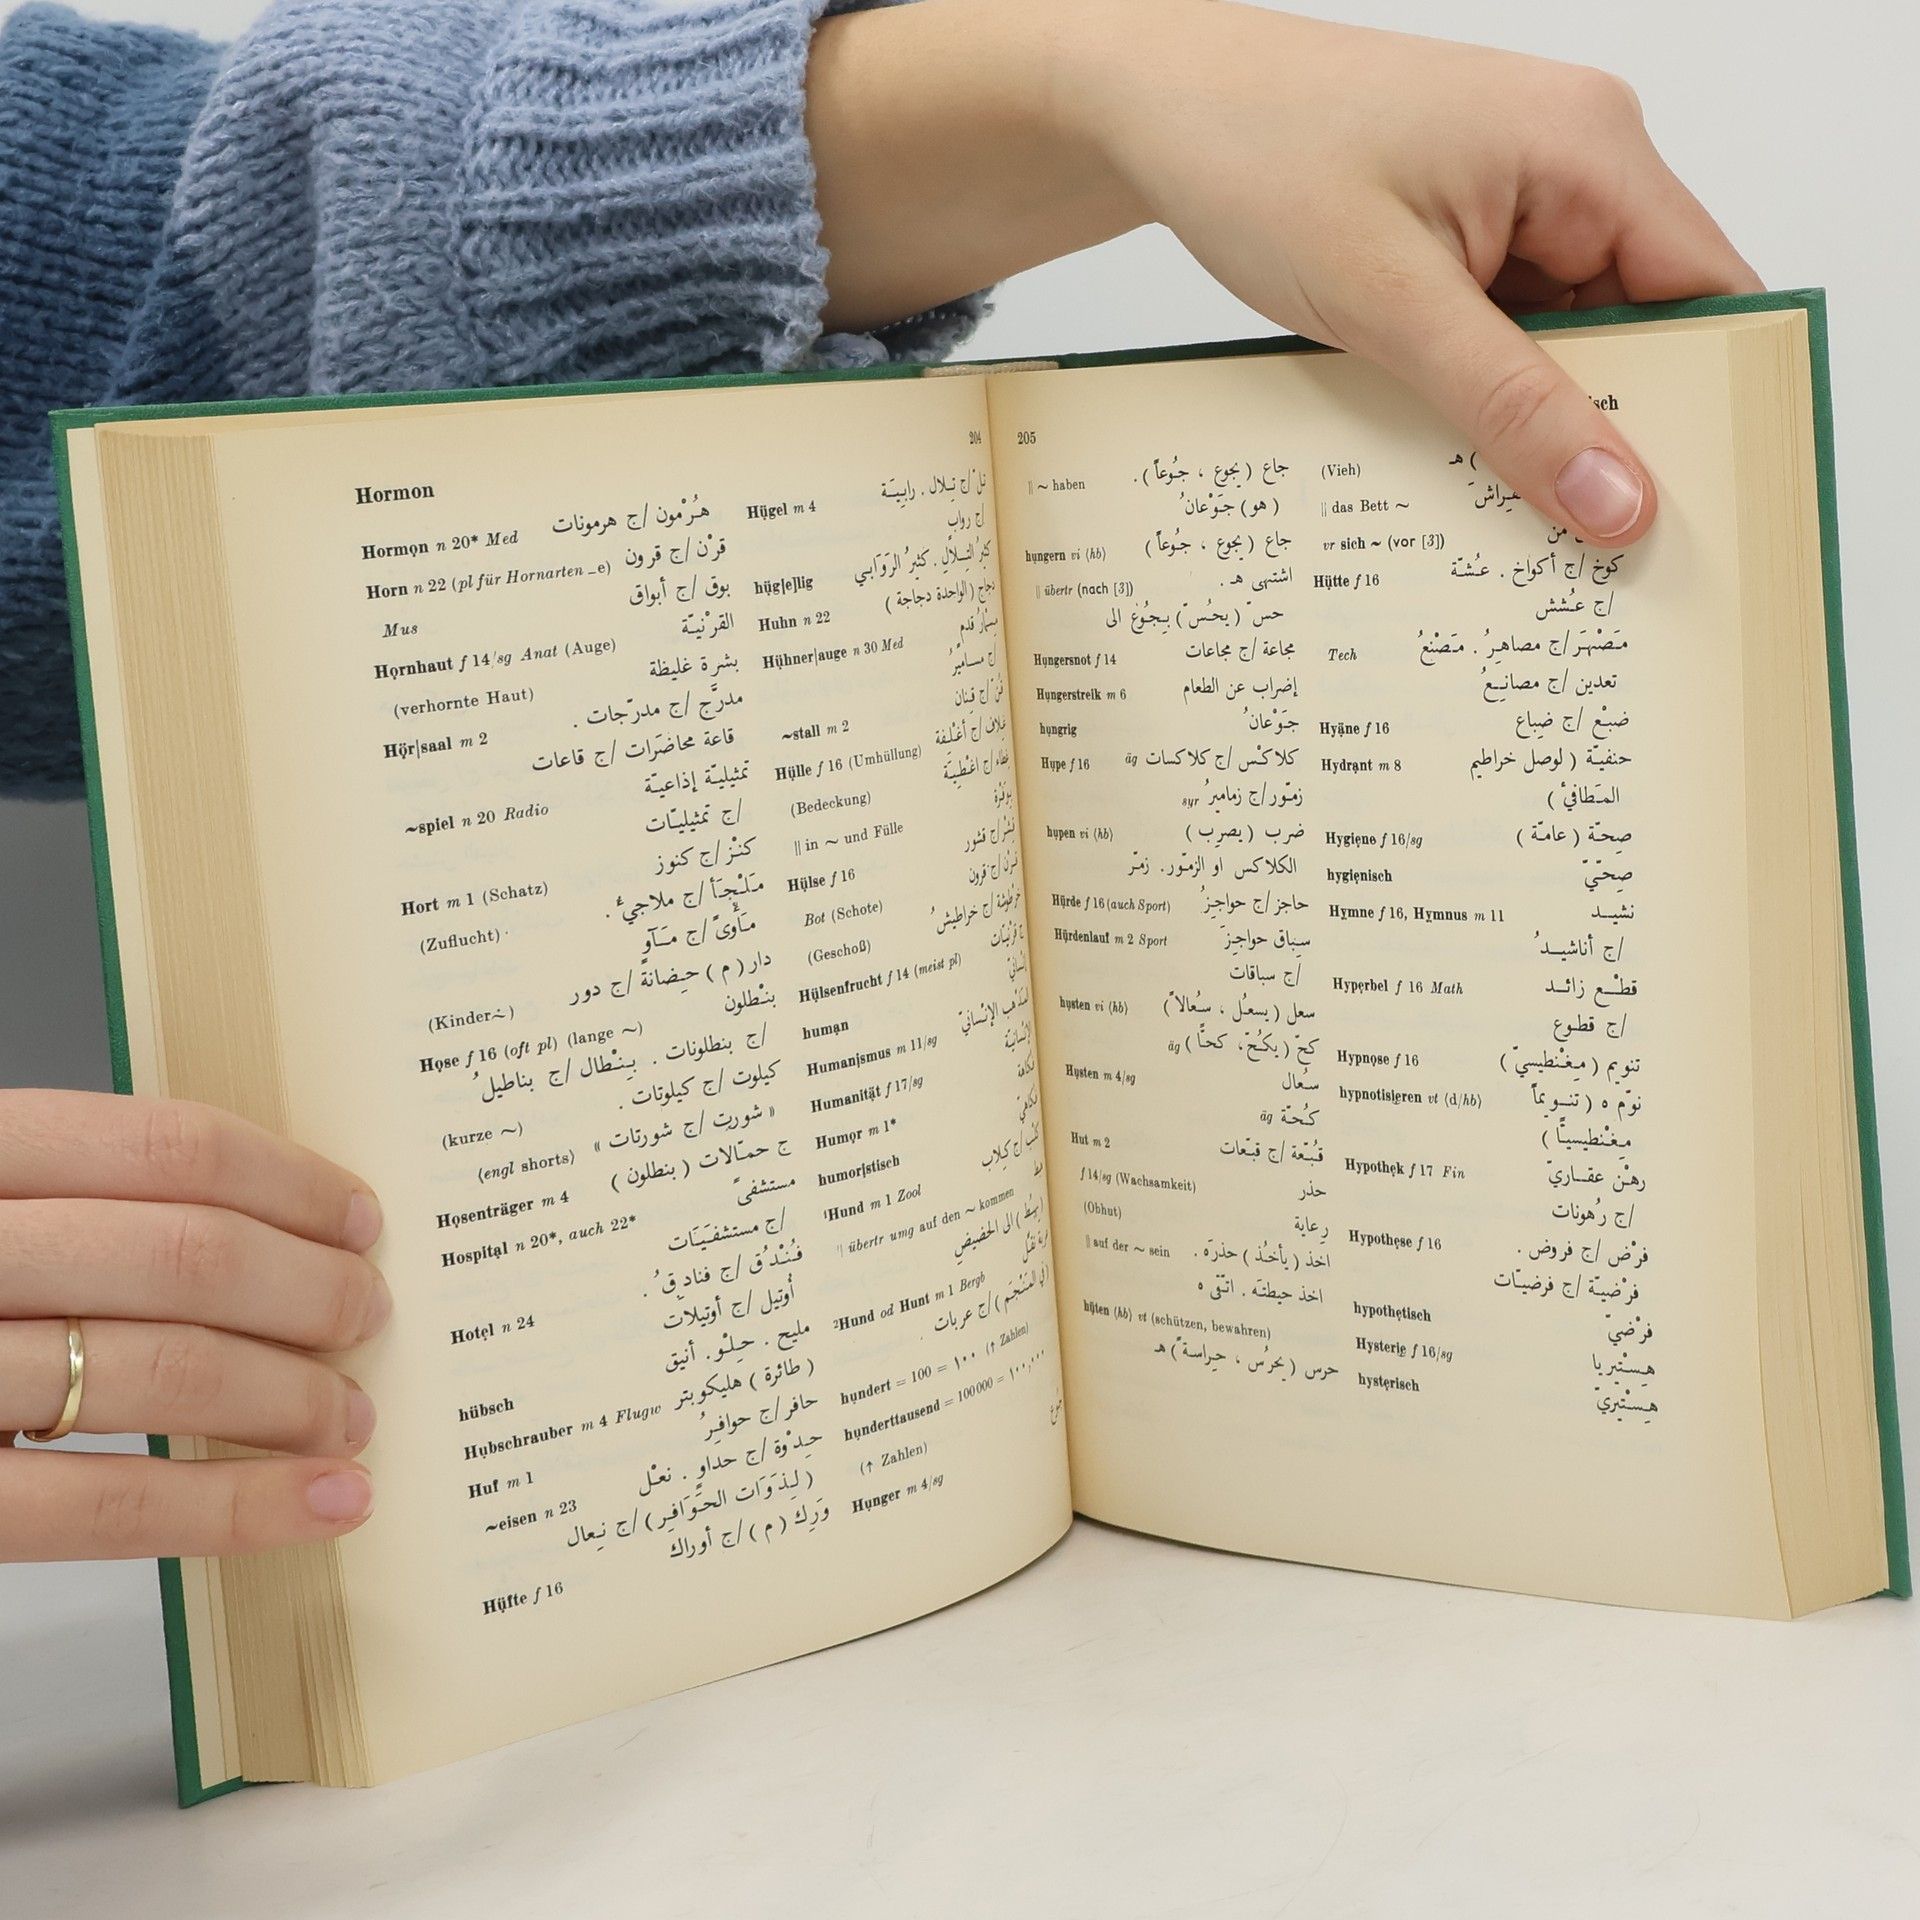 Hormon
204
Hormon n 20* Med هُرْمون /ج هرمونات
Horn n 22 (pl für Hornarten _e) قرْن /ج قرون
Mus بوق /ج أبواق
Hornhaut f 14/sg Anat (Auge) القرْنيّة
(verhornte Haut) بشرة غليظة
Hör|saal m 2 مدرَّج /ج مدرّجات .
قاعة محاضَرات /ج قاعات
~spiel n 20 Radio تمثيليّة إذاعيّة
/ج تمثيليّات
Hort m 1 (Schatz) كنْز /ج كنوز
(Zuflucht) مَلْجَأ /ج ملاجئُ .
مَأْوىً /ج مَآوٍ
(Kinder~) دار ( م ) حِضانة /ج دور
Hose f 16 (oft pl) (lange ~) بنْطلون
/ج بنطلونات . بِنْطال /ج بناطيلُ
(kurze ~) كيلوت /ج كيلوتات .
(engl shorts) « شورت /ج شورتات »
Hosenträger m 4 ج حمّالات ( بنطلون )
Hospital n 20*, auch 22* مستشفىً
/ج مستشفَيَات
Hotel n 24 فُنْدُق /ج فنادقُ .
أوتيل /ج أوتيلات
hübsch مليح . حِلْو . أنيق
Hubschrauber m 4 Flugw ( طائرة ) هليكوبتر
Huf m 1 حافر /ج حوافرُ
~eisen n 23 حِدْوة /ج حداوٍ . نعْل
( لِذَوَات الحَوَافِر ) /ج نِعال
Hüfte f 16 وَرِك ( م ) /ج أوراك
Hügel m 4 تلّ /ج تلال . رابِيَة
/ج روابٍ
hüg[e]lig كثيرُ التِلالِ . كثيرُ الرَوَابي
Huhn n 22 دجاج ( الواحدة دجاجة )
Hühner|auge n 30 Med مِسْمارُ قدم
/ج مساميرُ
~stall m 2 قُنّ /ج قِنان
Hülle f 16 (Umhüllung) غِلاف /ج أغْلِفة
(Bedeckung) غِطاء /ج اغْطِيَة
|| in ~ und Fülle بِوَفْرة
Hülse f 16 قِشْر /ج قشور
Bot (Schote) قرْن /ج قرون
(Geschoß) خرْطوشة /ج خراطيشُ
Hülsenfrucht f 14 (meist pl)
human إنْسانيّ
Humanismus m 11/sg المَذْهب الإنْسانيّ
Humanität f 17/sg الإنْسانيّة
Humor m 1* فكاهة
humoristisch فكاهيّ
¹Hund m 1 Zool كلْب /ج كِلاب
|| übertr umg auf den ~ kommen
الى الحضيض
²Hund od Hunt m 1 Bergb
( في المَنْجَم ) /ج عربات
hundert = 100 = ١٠٠ (↑ Zahlen)
hunderttausend = 100000 = ١٠٠،٠٠٠
(↑ Zahlen)
Hunger m 4/sg جُوع
205
|| ~ haben جاع ( يجوع ، جُوعاً ) .
( هو ) جَوْعانُ
hungern vi (hb) جاع ( يجوع ، جُوعاً )
|| übertr (nach [3]) اشتهى هـ .
حسّ ( يحُسّ ) بِجُوع الى
Hungersnot f 14 مجاعة /ج مجاعات
Hungerstreik m 6 إضراب عن الطعام
hungrig جَوْعانُ
Hupe f 16 äg كلاكْس /ج كلاكسات
syr زمّور /ج زماميرُ
hupen vi (hb) ضرب ( يضرِب )
الكلاكس او الزمّور. زمّر
Hürde f 16 (auch Sport) حاجز /ج حواجِزُ
Hürdenlauf m 2 Sport سِباق حواجِزَ
/ج سباقات
husten vi (hb) سعل ( يسعُل ، سُعالاً )
äg كحّ ( يكُحّ ، كحاًّ )
Husten m 4/sg سُعال
äg كُحّة
Hut m 2 قُبّعة /ج قبّعات
f 14/sg (Wachsamkeit) حذر
(Obhut) رِعاية
|| auf der ~ sein اخذ ( يأخُذ ) حذرَه .
اخذ حيطتَه . اتّقى ه
hüten (hb) vt (schützen, bewahren)
حرس ( يحرُس ، حِراسةً ) هـ
isch
(Vieh) ) هـ
|| das Bett ~ الفِراشَ
vr sich ~ (vor [3]) من
Hütte f 16 كوخ /ج أكواخ . عُشّة
/ج عُشش
Tech مَصْهَر /ج مصاهِرُ . مَصْنعُ
تعدين /ج مصانِعُ
Hyäne f 16 ضبْع /ج ضِباع
Hydrant m 8 حنفيّة ( لوصل خراطيم
المَطافئ )
Hygiene f 16/sg صِحّة ( عامّة )
hygienisch صِحّيّ
Hymne f 16, Hymnus m 11 نشيد
/ج أناشيدُ
Hyperbel f 16 Math قطْع زائد
/ج قطوع
Hypnose f 16 تنويم ( مِغْنطيسيّ )
hypnotisieren vt (d/hb) نوّم ه ( تنويماً
مِغْنطيسيًّا )
Hypothek f 17 Fin رهْن عقاريّ
/ج رُهونات
Hypothese f 16 فرْض /ج فروض .
فرْضيّة /ج فرضيّات
hypothetisch فرْضيّ
Hysterie f 16/sg هِسْتيريا
hysterisch هِسْتيريّ